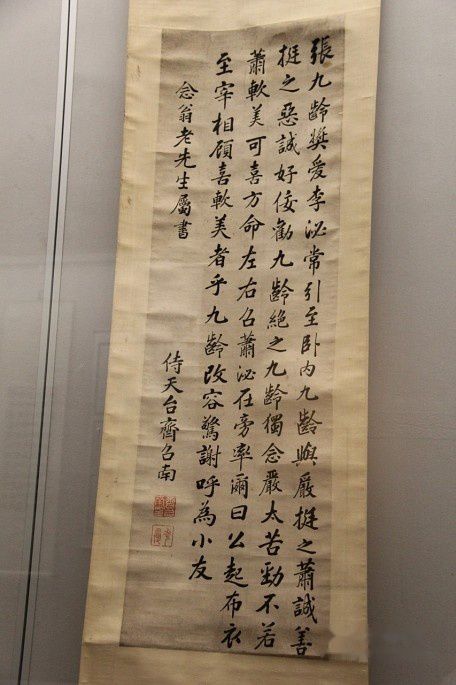 張九齡奬愛李泌常引至卧内九齡與嚴挺之蕭誠善
挺之惡誠好佞勸九齡絶之九齡獨念嚴太苦勁不若
蕭軟美可喜方命左右召蕭泌在旁率爾曰公起布衣
至宰相顧喜軟美者乎九齡改容驚謝呼為小友
念翁老先生屬書
侍天台齊召南